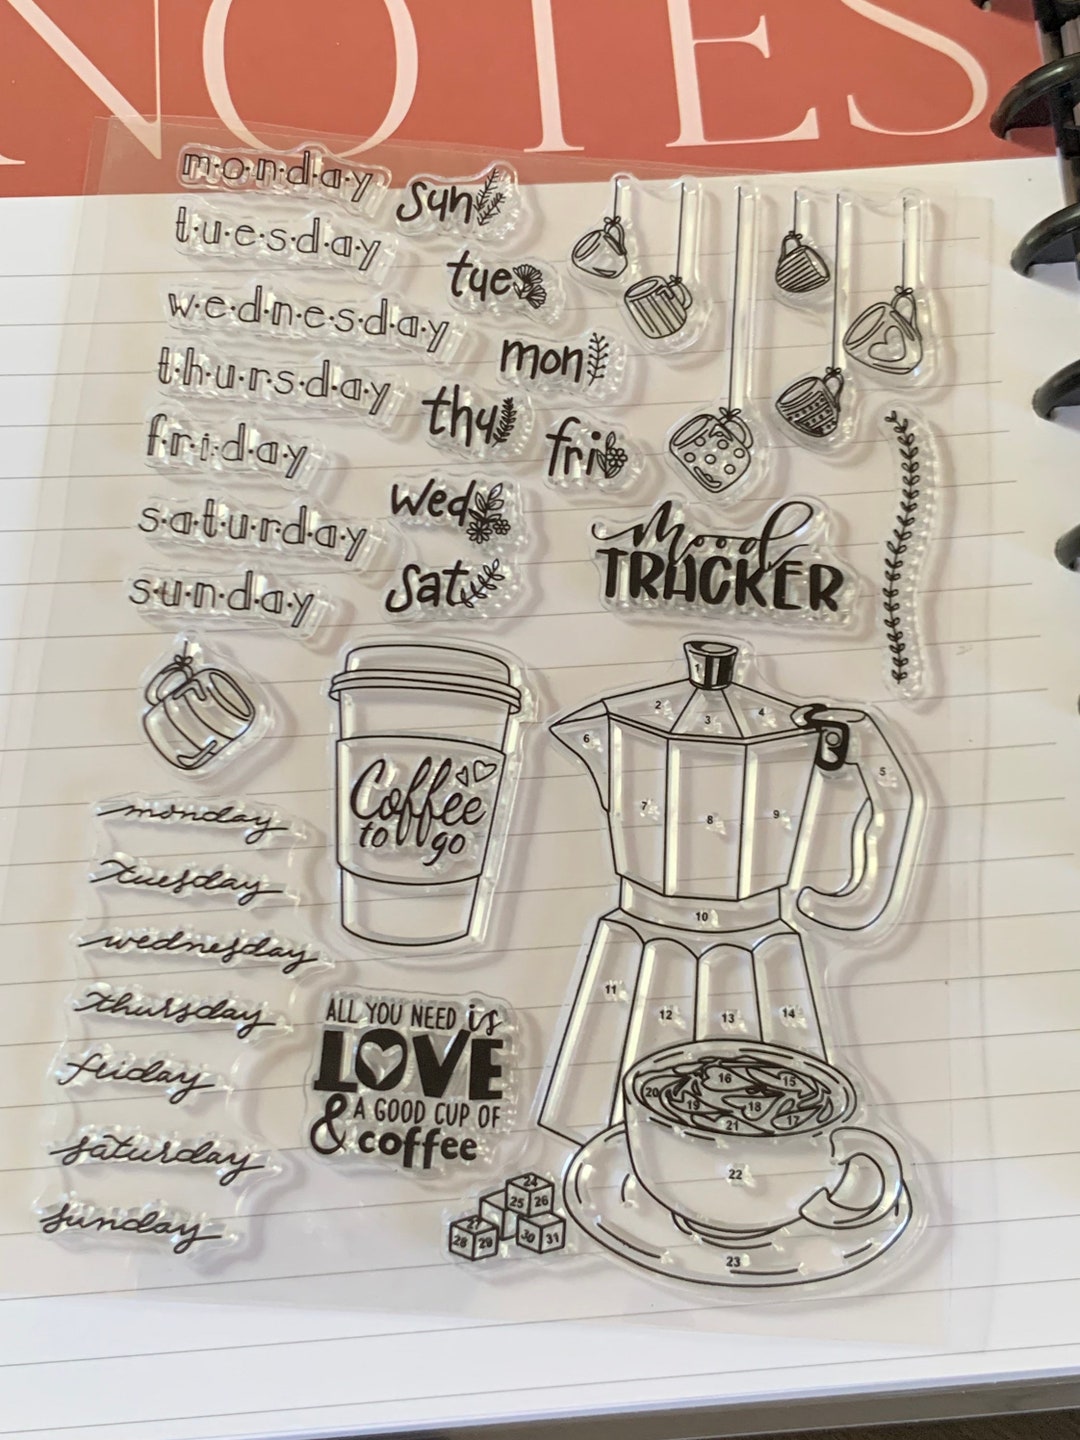 NOTES
monday
tuesday
wednesday
thursday
friday
saturday
sunday
sun
tue
mon
thu
fri
wed
sat
mood
TRACKER
Coffee
to go
monday
tuesday
wednesday
thursday
friday
saturday
sunday
ALL YOU NEED is
LOVE
& A GOOD CUP OF
coffee
1
2
3
4
5
6
7
8
9
10
11
12
13
14
15
16
17
18
19
20
21
22
23
24
25
26
27
28
29
30
31